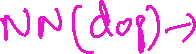 NN(dog)→